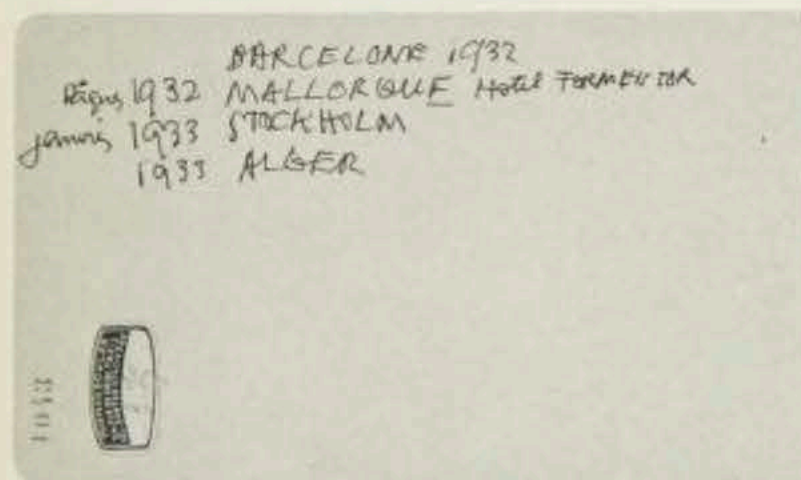 BARCELONE 1932
Pâques 1932 MALLORQUE Hotel FORMENTOR
janvier 1933 STOCKHOLM
1933 ALGER